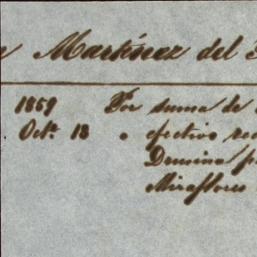 Martínez del
1859 Por suma de
Oct.e 18 " efectivo
Miraflores